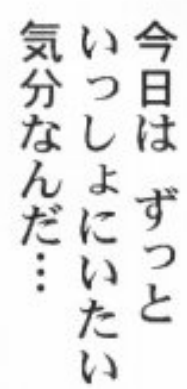 今日は ずっと
いっしょにいたい
気分なんだ…